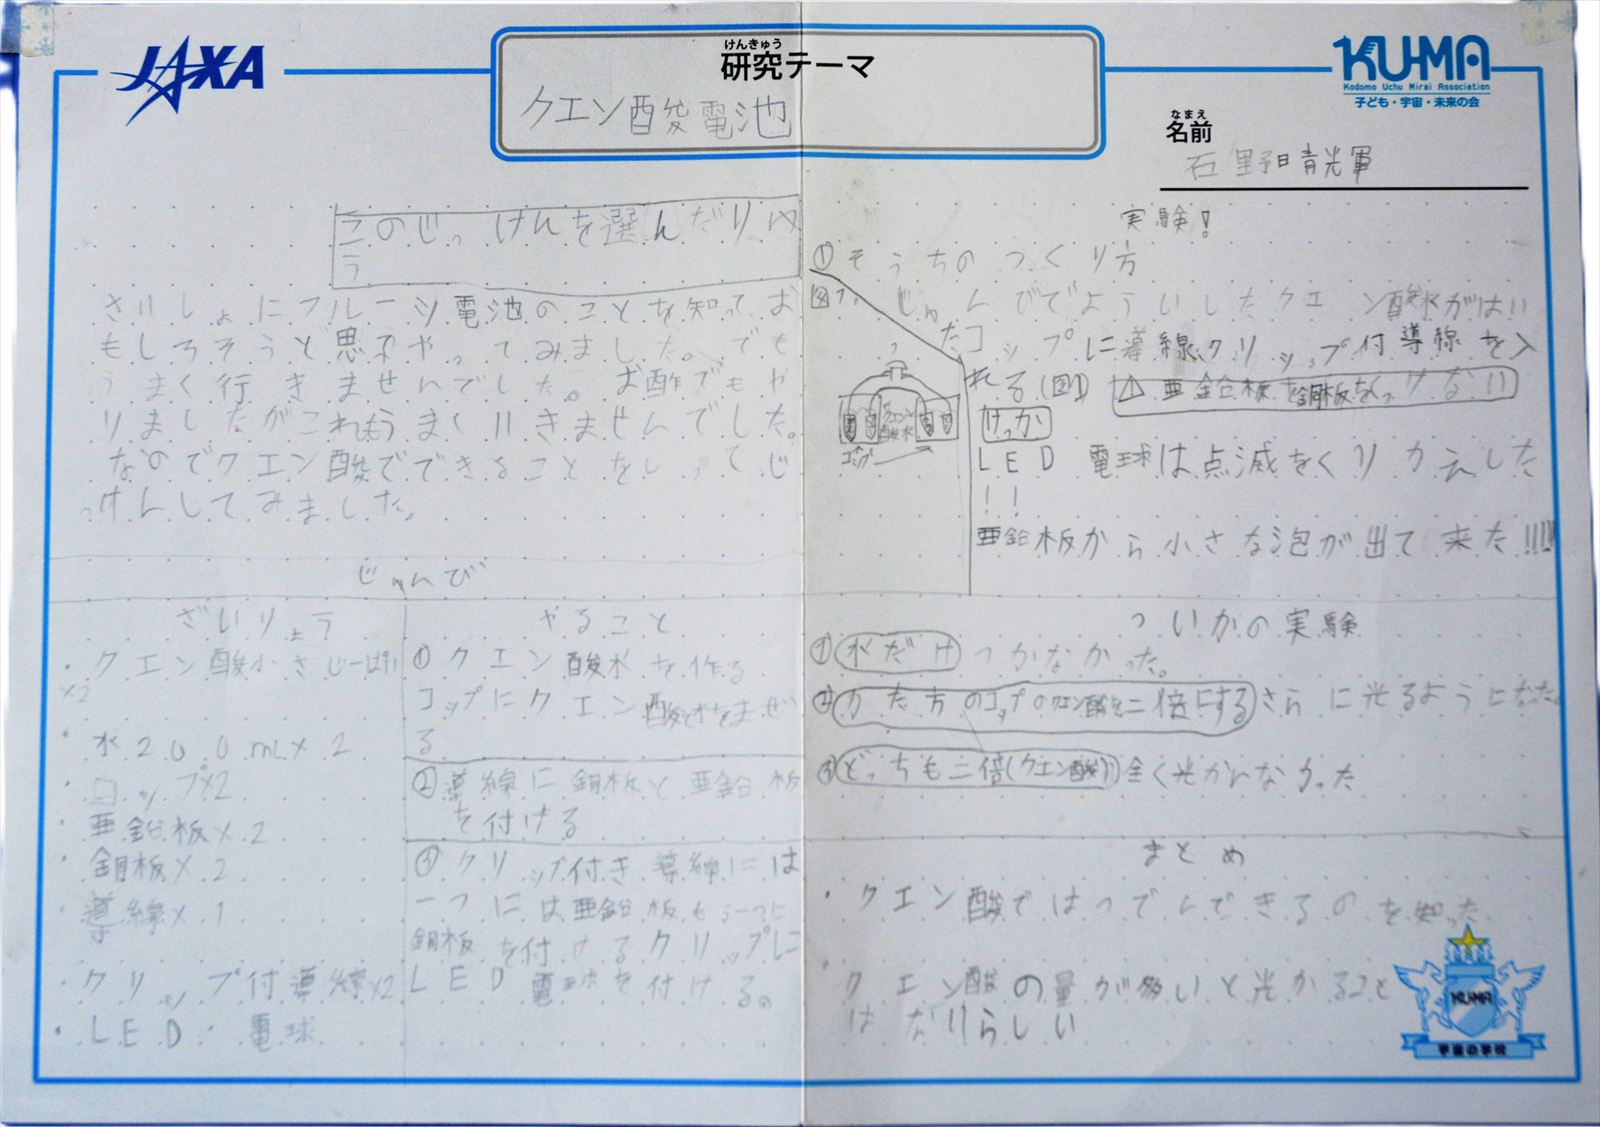 JAXA
けんきゅう
研究テーマ
クエン酸電池
KUMA
Kodomo Uchu Mirai Association
子ども・宇宙・未来の会
なまえ
名前
石野晴輝
このじっけんを選んだりゆ
う
さいしょにフルーツ電池のことを知ってお
もしろそうと思てやってみました。でも
うまく行きませんでした。お酢でもや
りましたがこれもうまくいきませんでした。
なのでクエン酸でできることをしってじ
っけんしてみました。
じゅんび
ざいりょう
・クエン酸小さじ一ぱい
×2
・水200mL×2
・コップ×2
・亜鉛板×2
・銅板×2
・導線×1
・クリップ付導線×2
・LED電球
やること
①クエン酸水を作る
コップにクエン酸と水をまぜ
る
②導線に銅板と亜鉛板
を付ける
③クリップ付き導線には
一つには亜鉛板もう一つに
銅板を付けるクリップに
LED電球を付ける。
実験!
①そうちのつくり方
図1
じゅんびでよういしたクエン酸水がはい
ったコップに導線、クリップ付導線を入
れる(図1) ⚠亜鉛板と銅板をくっつけない
クエン
酸水
コップ
けっか
LED電球は点滅をくりかえした
!!
亜鉛板から小さな泡が出て来た!!!!
ついかの実験
①水だけ つかなかった。
②かた方のコップのクエン酸を二倍にする さらに光るようになった。
③どっちも二倍(クエン酸) 全く光かんなかった
まとめ
・クエン酸ではつでんできるのを知った
・クエン酸の量が多いと光かること
はないらしい
KUMA
宇宙の学校